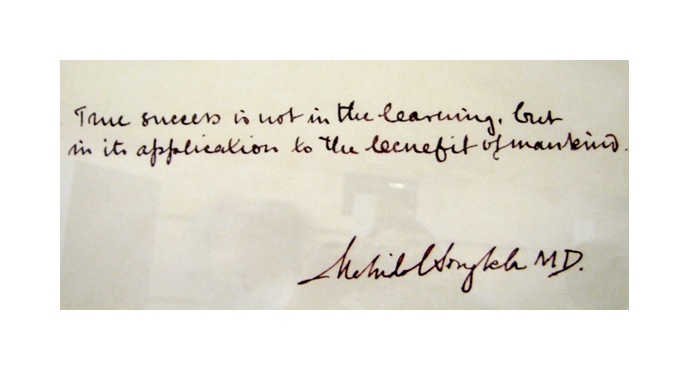 True success is not in the learning, but
in its application to the benefit of mankind.
Mahidol Songkla M.D.